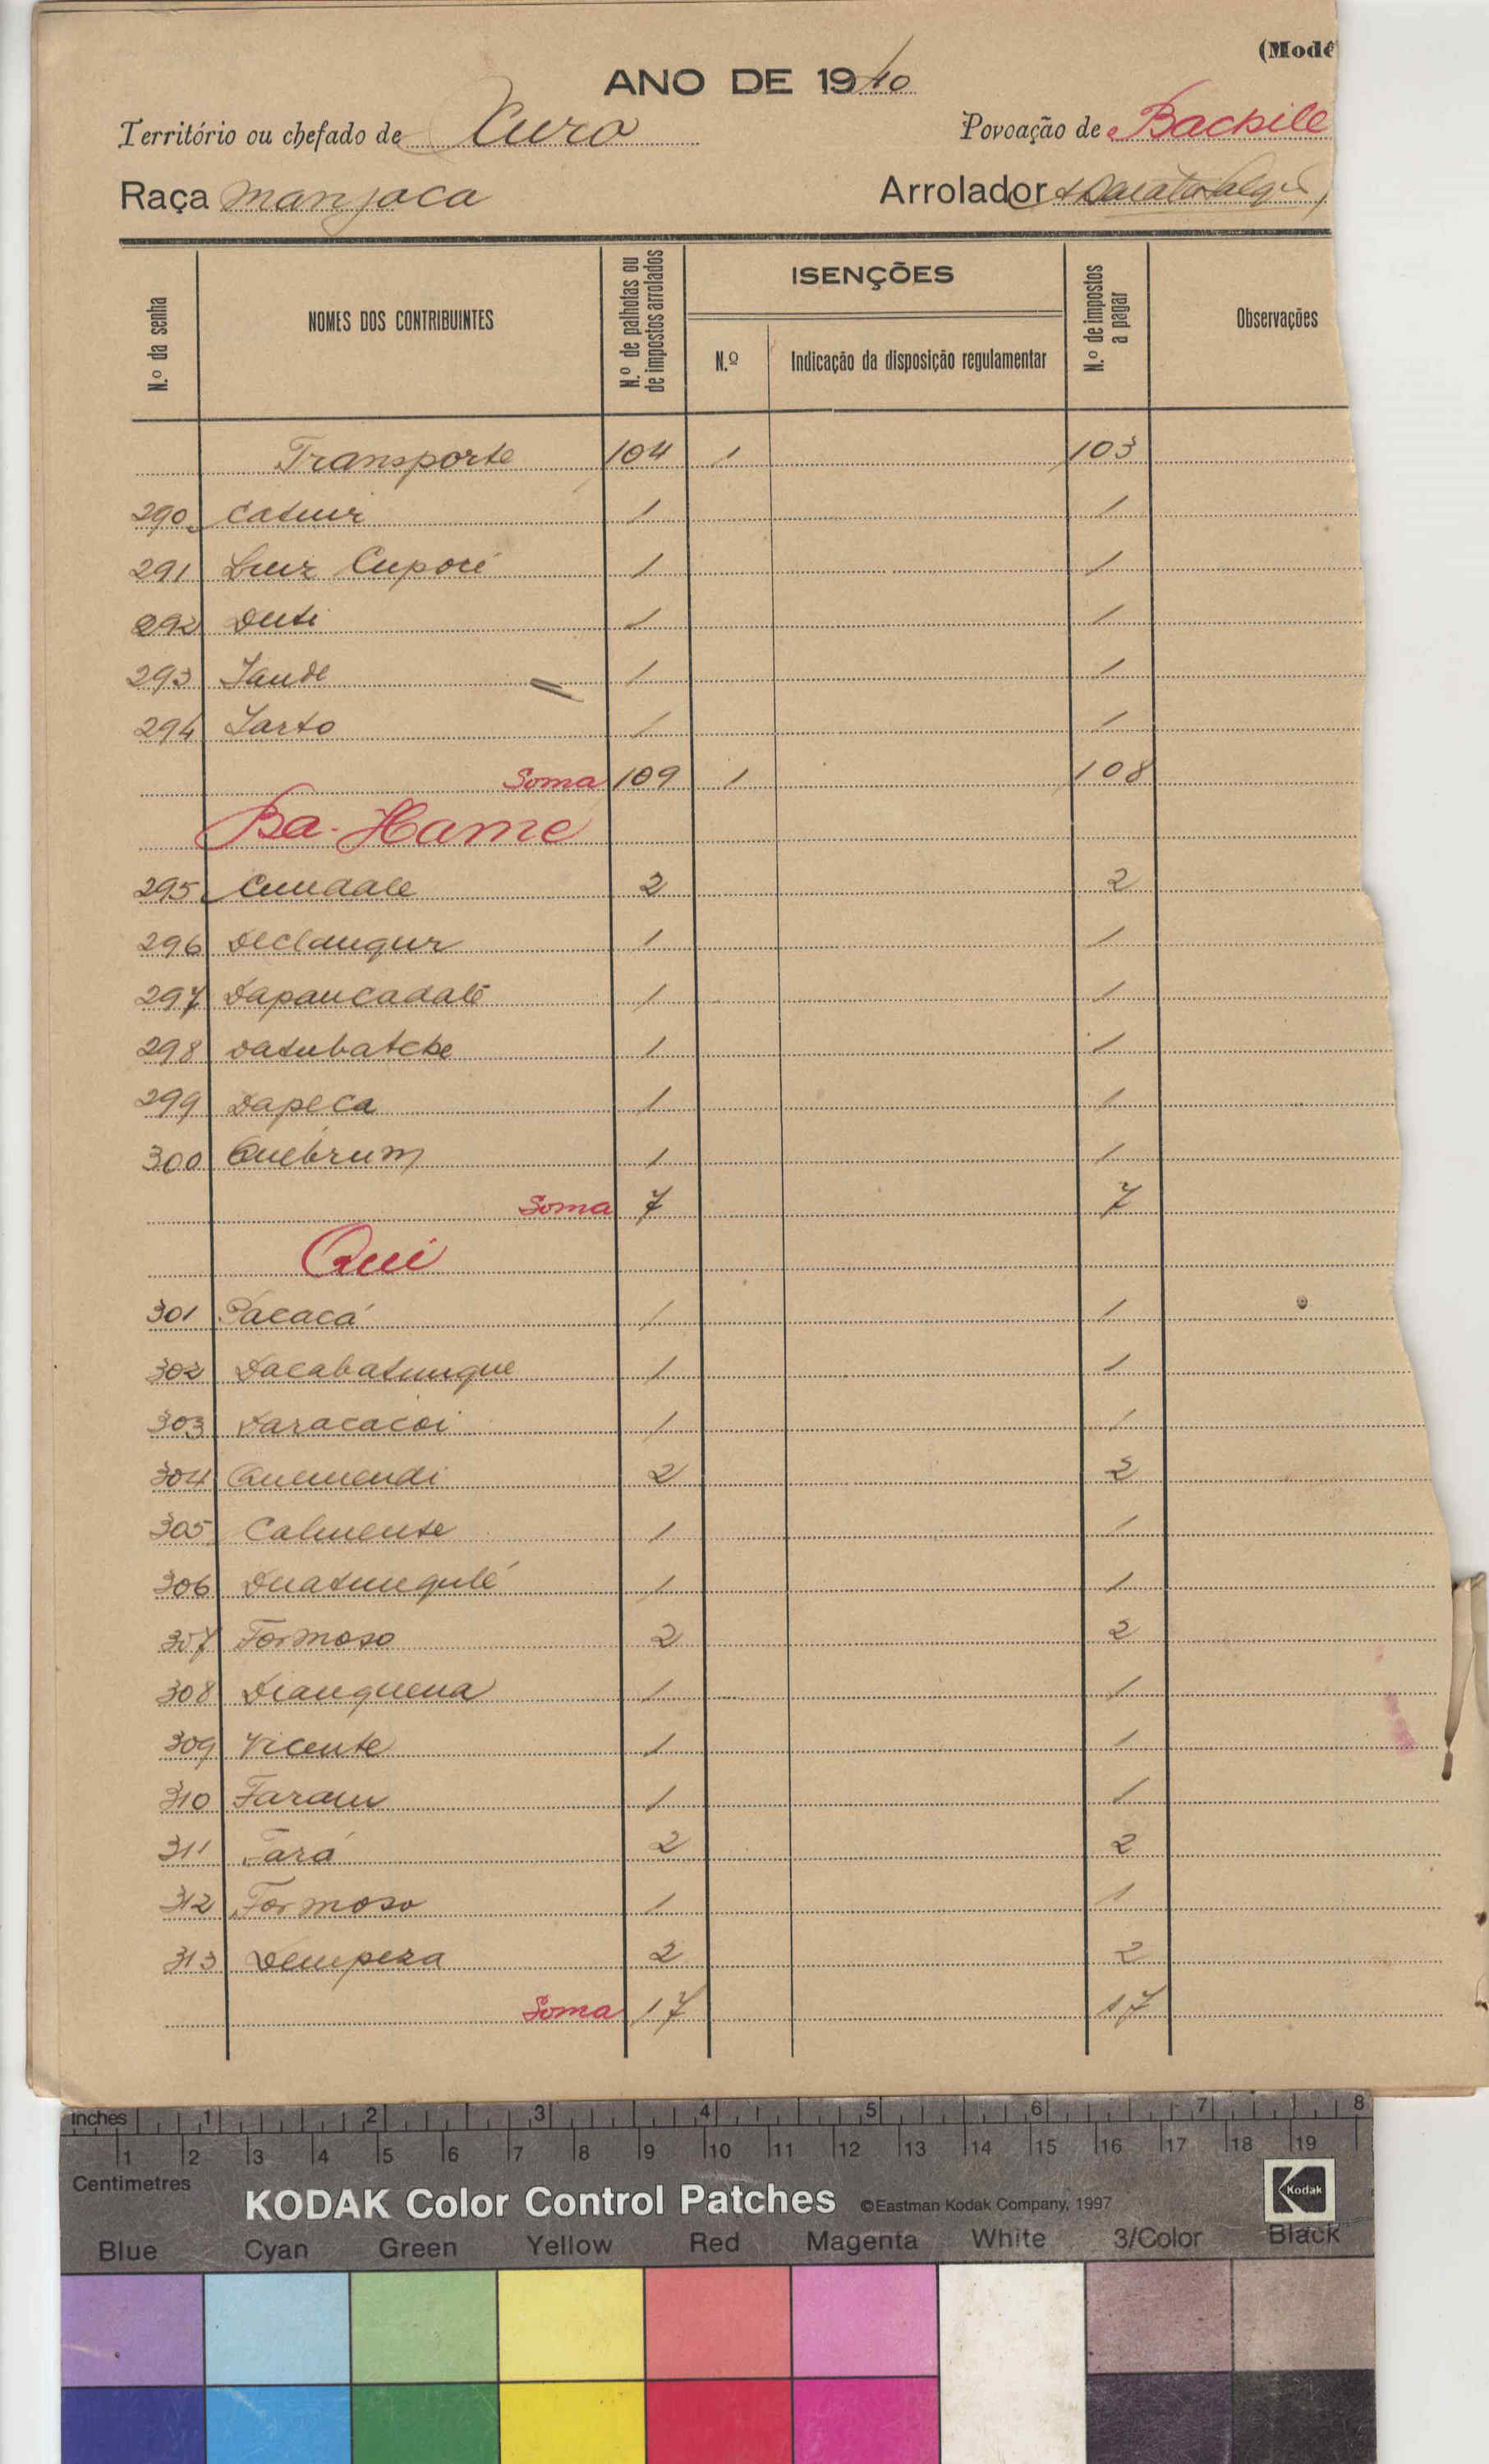 (Mode
ANO DE 1940
Território ou chefado de Churo Povoação de Bachile
Raça manjaca Arrolador
N.º da senha NOMES DOS CONTRIBUINTES N.º de palhotas ou de impostos arrolados ISENÇÕES N.º de impostos a pagar Observações
N.º Indicação da disposição regulamentar
Transporte 104 1 103
290 Catuur 1 1
291 Luiz Cuporé 1 1
292 Duti 1 1
293 Jaude 1 1
294 Jarto 1 1
Soma 109 1 108
Ba-Hame
295 Cuudale 2 2
296 Declangur 1 1
297 Dapancadalé 1 1
298 Datubatche 1 1
299 Dapeca 1 1
300 Quebrum 1 1
Soma 7 7
Qui
301 Pacacá 1 1
302 Dacabatunque 1 1
303 Daracacoi 1 1
304 Quemendi 2 2
305 Calmente 1 1
306 Duatungulé 1 1
307 Formoso 2 2
308 Dianquena 1 1
309 Vicente 1 1
310 Faram 1 1
311 Fará 2 2
312 Formoso 1 1
313 Dempeza 2 2
Soma 17 17
inches 1 2 3 4 5 6 7 8
1 2 3 4 5 6 7 8 9 10 11 12 13 14 15 16 17 18 19
Centimetres
KODAK Color Control Patches ©Eastman Kodak Company, 1997 Kodak
Blue Cyan Green Yellow Red Magenta White 3/Color Black